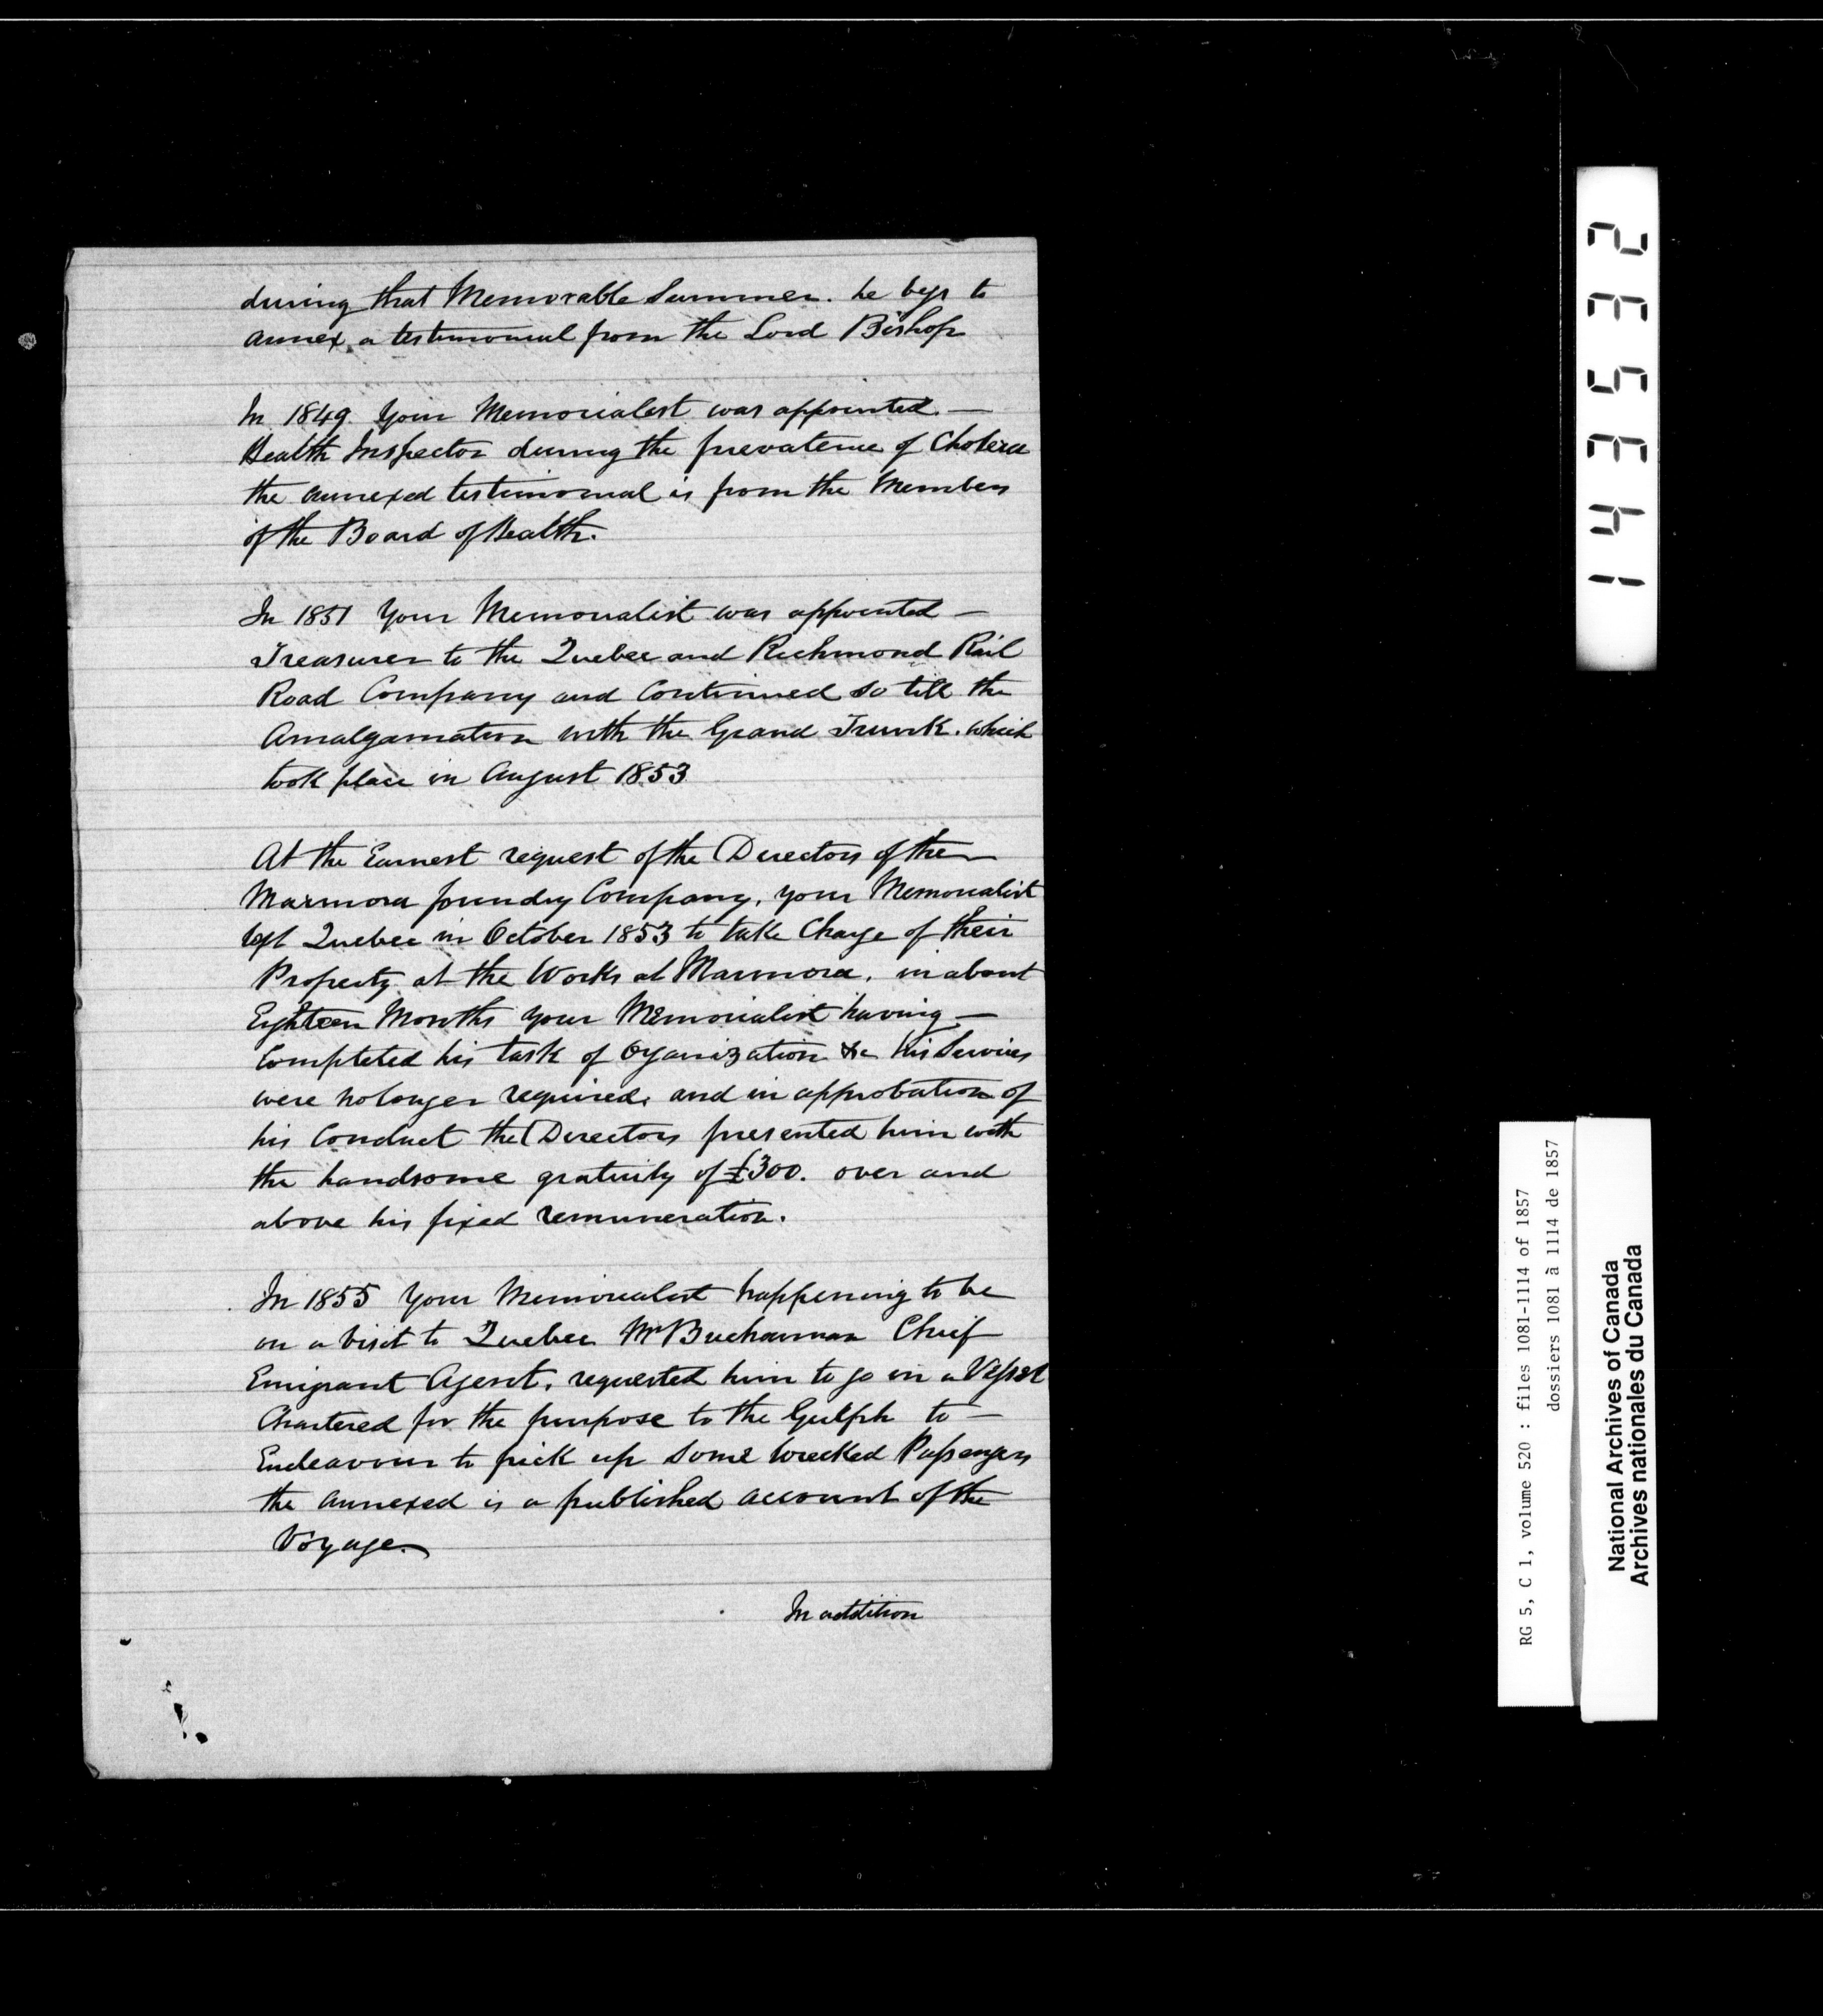 during that Memorable Summer. he begs to
annex a testimonial from the Lord Bishop
In 1849 Your Memorialist was appointed. —
Health Inspector during the prevalence of Cholera
the annexed testimonial is from the Members
of the Board of Health.
In 1851 Your Memorialist was appointed —
Treasurer to the Quebec and Richmond Rail
Road Company and Continued so till the
Amalgamation with the Grand Trunk. which
took place in August 1853
At the Earnest request of the Directors of the
Marmora foundry Company, your Memorialist
left Quebec in October 1853 to take Charge of their
Property at the Works at Marmora. in about
Eighteen Months your Memorialist having —
Completed his task of Organization &c his Services
were no longer required, and in approbation of
his Conduct the Directors presented him with
the handsome gratuity of £300. over and
above his fixed remuneration.
In 1855 Your Memorialist happening to be
on a Visit to Quebec Mr Buchannan Chief
Emigrant Agent, requested him to go in a Vessel
Chartered for the purpose to the Gulph to —
Endeavour to pick up some Wrecked Passengers
the annexed is a published account of the
Voyage.
In addition
143532
RG 5, C 1, volume 520 : files 1081-1114 of 1857
dossiers 1081 à 1114 de 1857
National Archives of Canada
Archives nationales du Canada